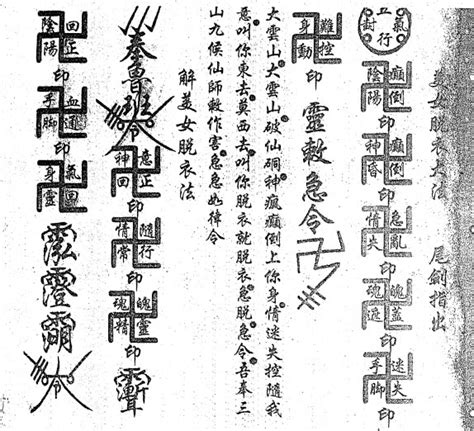 美女脫衣大法 尾劍指出
五行氣封
癲倒陰陽 印 癲倒神昏 印 急亂情失 印 魄蓋魂遮 印 迷失手脚 印
難控身動 印 靈敕急令
大雲山大雲山破仙硐神瘋癲倒上你身情迷失控隨我
意叫你東去莫西去叫你脫衣就脫衣急脫急令吾奉三
山九候仙師敕作害急急如律令
解美女脫衣法
奉魯班令 意正神回 印 隨行情常 印 魄靈魂精 印
回正陰陽 印 血通手脚 印 氣回身靈 令